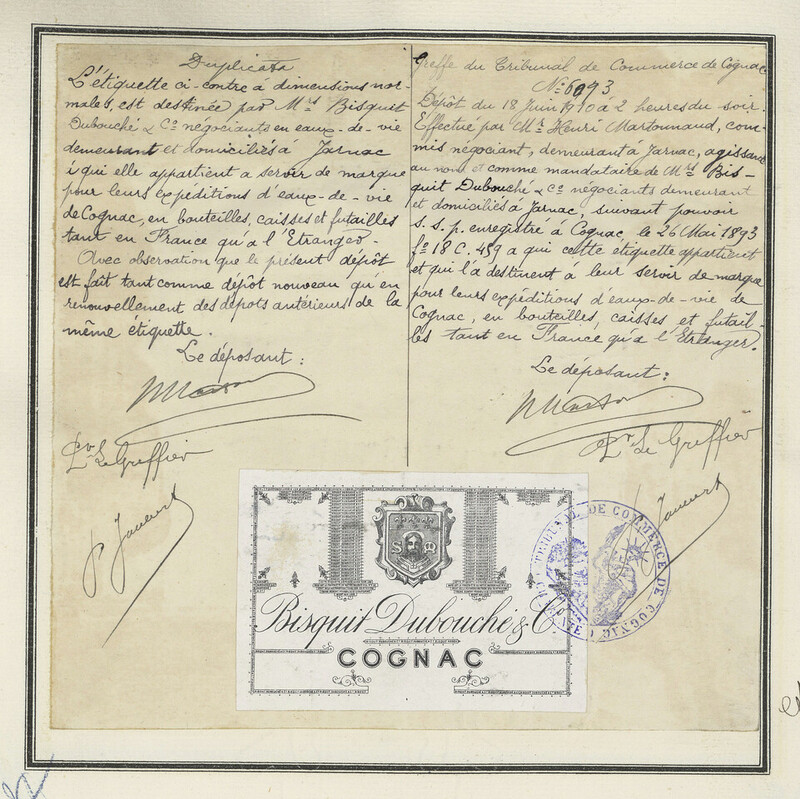 Duplicata
L'étiquette ci-contre a dimensions nor-
males, est destinée par Mrs Bisquit
Dubouché & Co négociants en eaux-de-vie
demeurant et domiciliés à Jarnac
à qui elle appartient a servir de marque
pour leurs expéditions d'eaux-de-vie
de Cognac, en bouteilles, caisses et futailles
tant en France qu'à l'Etranger.
Avec observation que le présent dépôt
est fait tant comme dépôt nouveau qu'en
renouvellement des dépots antérieurs de la
même étiquette.
Le déposant:
Le Greffier
Greffe du Tribunal de Commerce de Cognac
No 6093
Dépôt du 18 Juin 1910 a 2 heures du soir.
Effectué par Mr Henri Martonnaud, com-
mis négociant, demeurant à Jarnac, agissant
au nom et comme mandataire de Mrs Bis-
quit Dubouché & Co négociants demeurant
et domiciliés à Jarnac, suivant pouvoir
s.s.p. enregistré à Cognac, le 26 Mai 1893
fo 18 C. 459 a qui cette etiquette appartient
et qui l'a destinent à leur servir de marque
pour leurs expéditions d'eaux-de-vie de
Cognac, en bouteilles, caisses et futail-
les tant en France qu'a l'Etranger.
Le déposant:
Pr Le Greffier
Bisquit Dubouché & Co
COGNAC
TRIBUNAL DE COMMERCE DE COGNAC